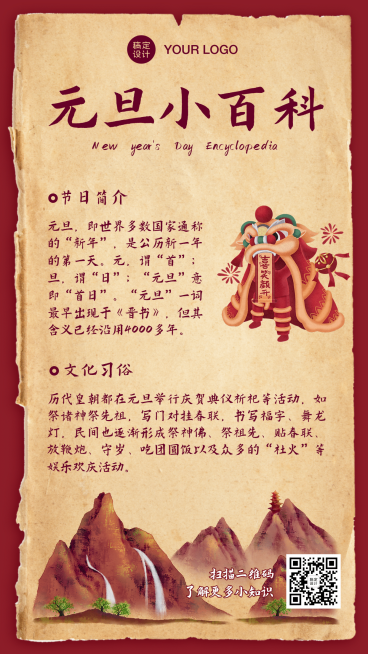 稿定
设计
YOUR LOGO
元旦小百科
New year's Day Encyclopedia
节日简介
元旦，即世界多数国家通称
的“新年”，是公历新一年
的第一天。元，谓“首”；
旦，谓“日”；“元旦”意
即“首日”。“元旦”一词
最早出现于《晋书》，但其
含义已经沿用4000多年。
吉音笑颜开
文化习俗
历代皇朝都在元旦举行庆贺典仪祈祀等活动，如
祭诸神祭先祖，写门对挂春联，书写福字、舞龙
灯，民间也逐渐形成祭神佛、祭祖先、贴春联、
放鞭炮、守岁、吃团圆饭以及众多的“社火”等
娱乐欢庆活动。
扫描二维码
了解更多小知识
稿定
设计